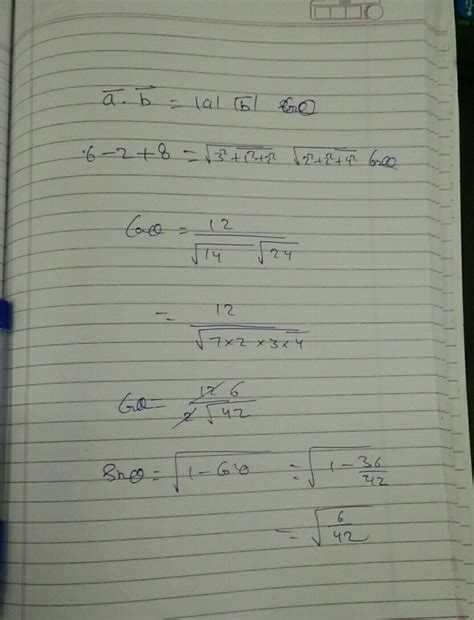 a̅ . b̅ = |a| |b̅| Cosθ
6 - 2 + 8 = √(3² + 1² + 2²) √(2² + 2² + 4²) Cosθ
Cosθ = 12 / (√14 √24)
= 12 / √(7×2×3×4)
Cosθ = 12 6 / (2 √42)
Sinθ = √(1 - Cos²θ) = √(1 - 36/42)
= √(6/42)